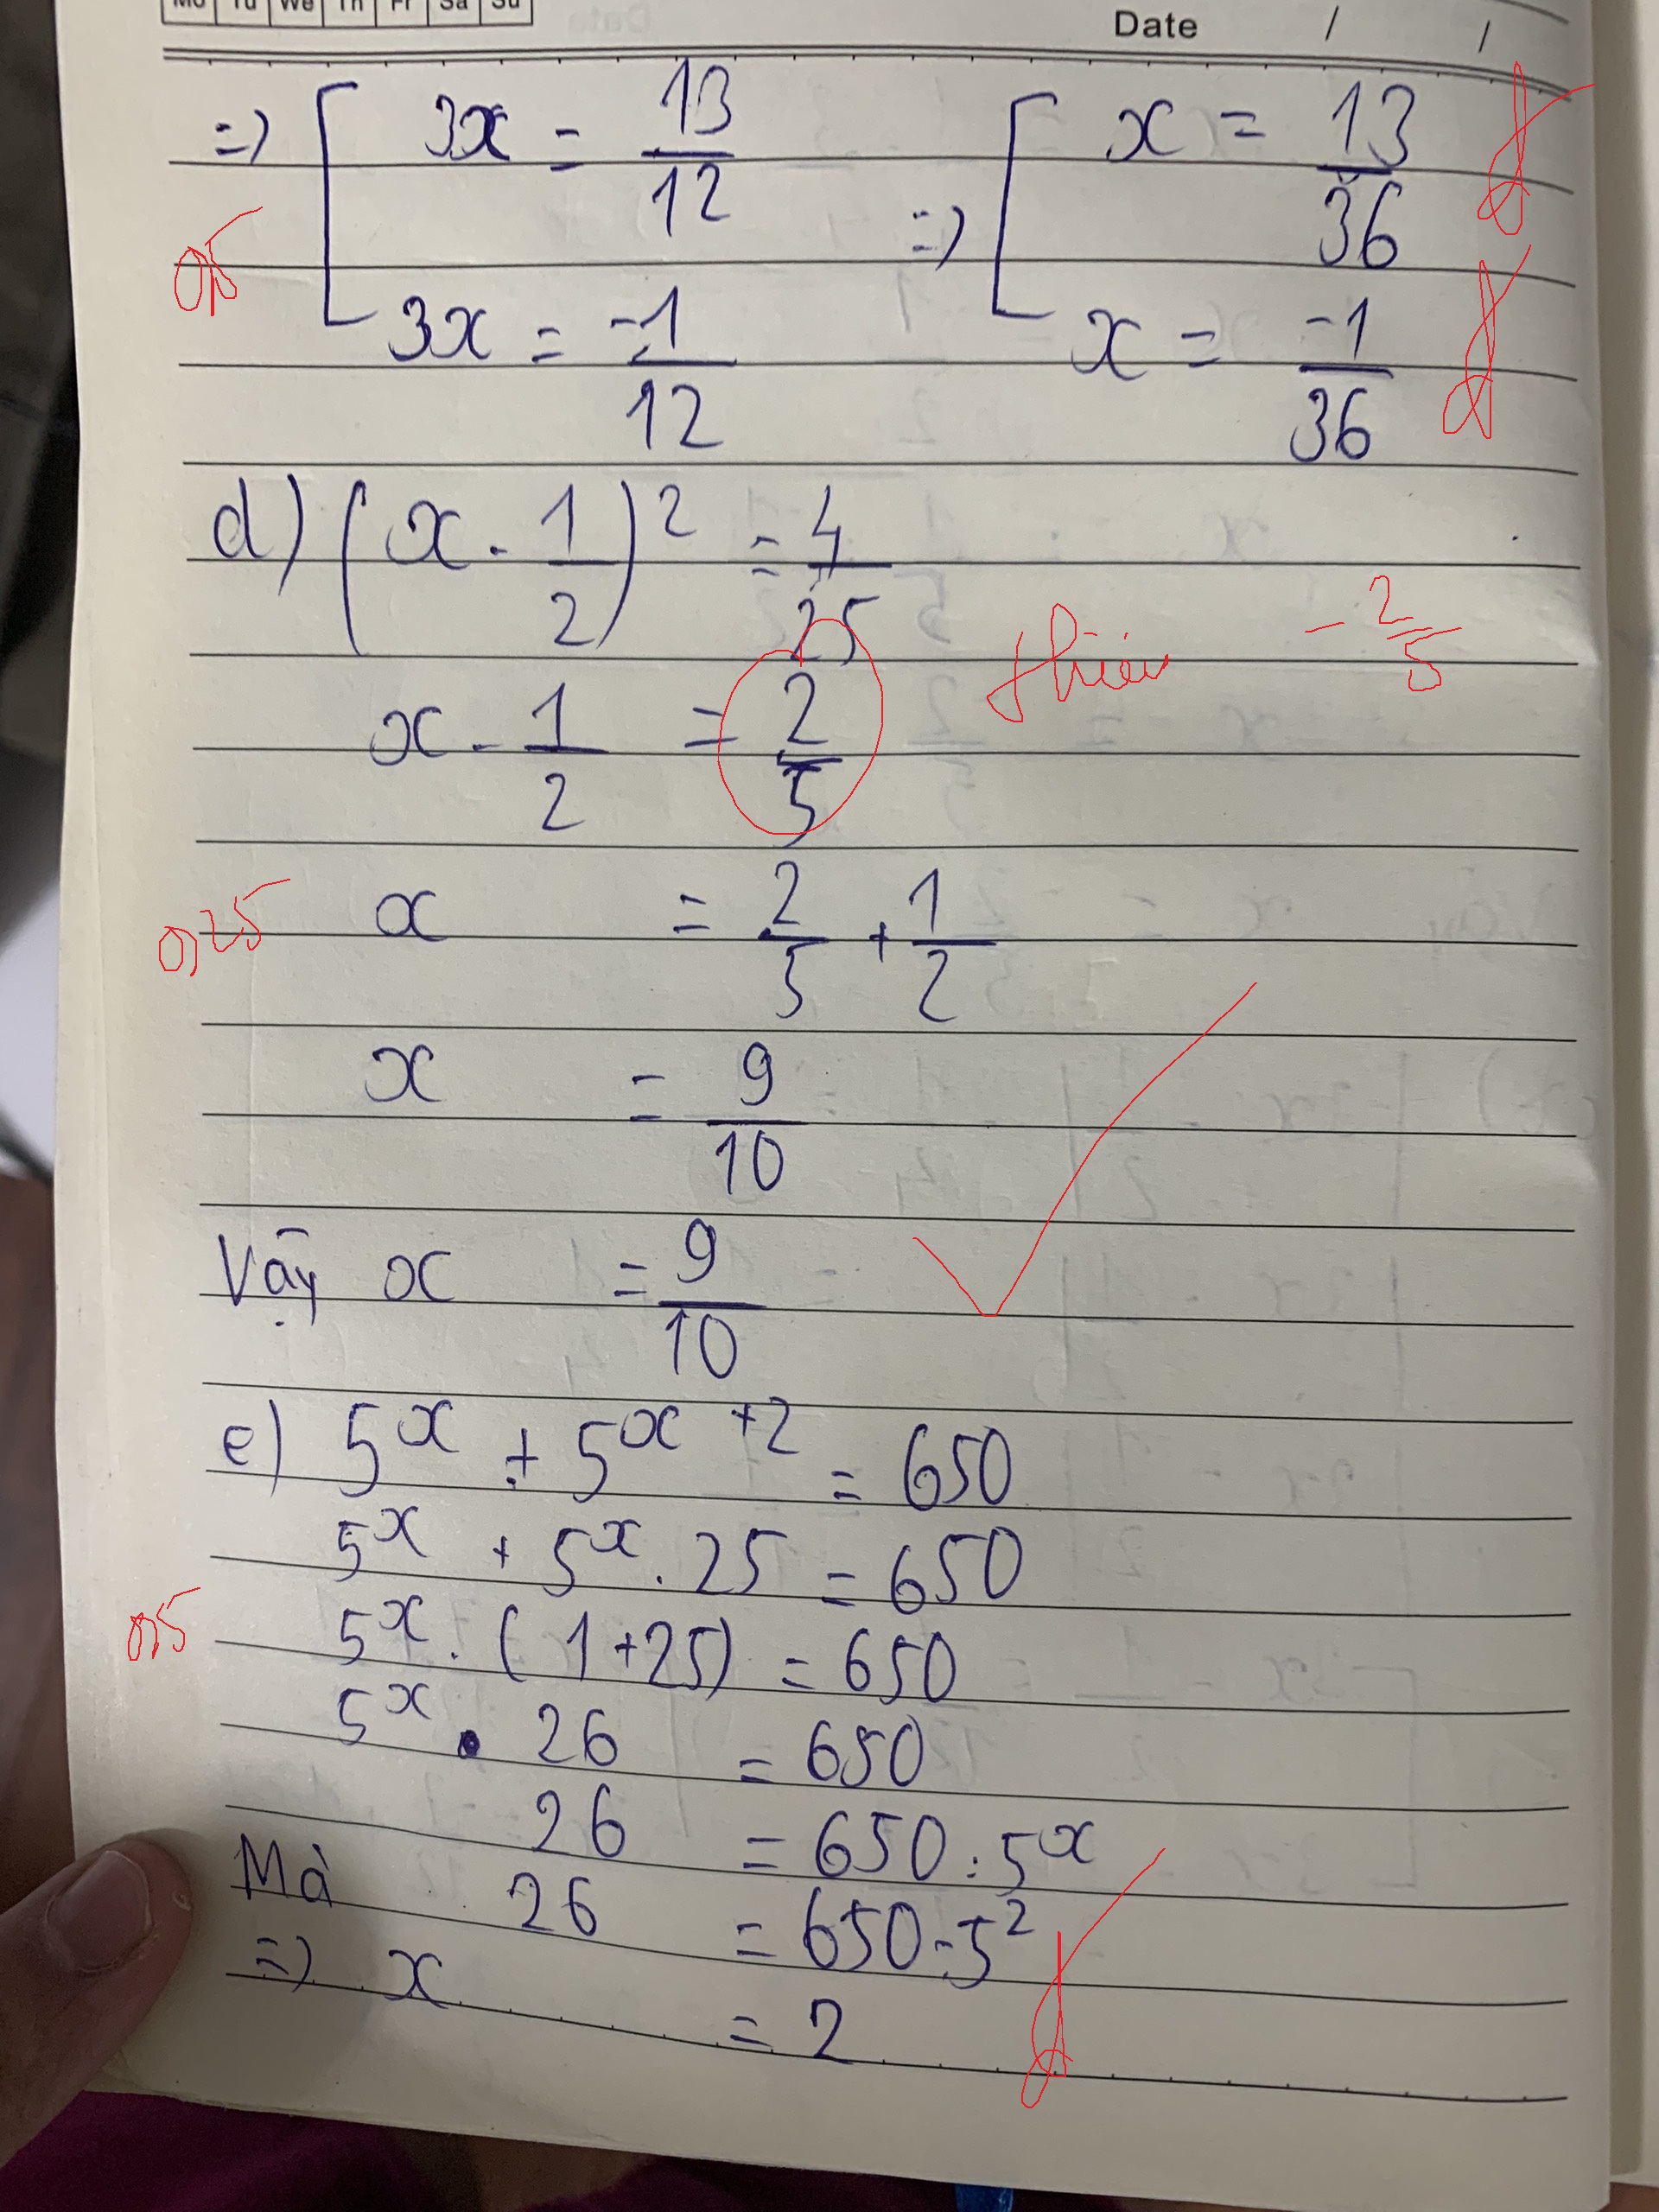 Mo Tu We Th Fr Sa Su
Date / /
=> [ 3x = 13/12 => [ x = 13/36 đ
0,5
3x = -1/12 x = -1/36 đ
d) (x - 1/2)² = 4/25
x - 1/2 = 2/5 thiếu -2/5
0,25 x = 2/5 + 1/2
x = 9/10
Vậy x = 9/10
e) 5^x + 5^x+2 = 650
5^x + 5^x . 25 = 650
0,5 5^x . (1+25) = 650
5^x . 26 = 650
26 = 650 : 5^x
Mà 26 = 650 : 5²
=> x = 2 đ